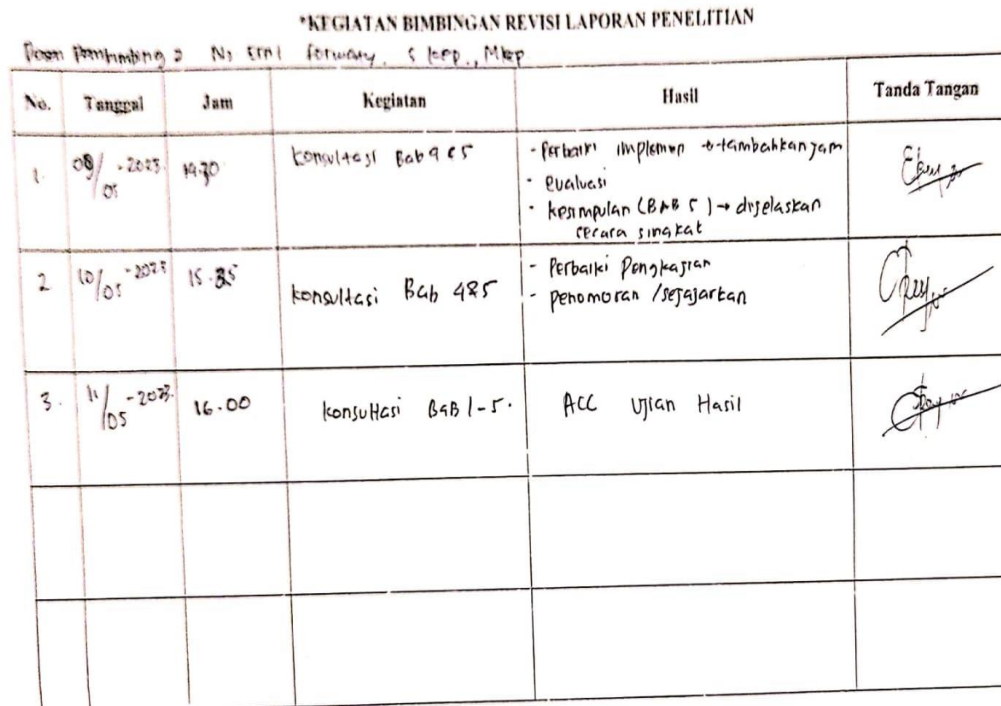 *KEGIATAN BIMBINGAN REVISI LAPORAN PENELITIAN
Dosen Pembimbing : Ns Erni S kep., Mkep
No. Tanggal Jam Kegiatan Hasil Tanda Tangan
1. 08/05 -2023. konsultasi Bab 4&5 - Perbaiki implemen → tambahkan jam
- evaluasi
- kesimpulan (BAB 5) → dijelaskan
secara singkat
2 10/05 -2023 15.35 konsultasi Bab 4&5 - Perbaiki Pengkajian
- penomoran /sejajarkan
3. 11/05 -2023. 16.00 konsultasi BAB 1-5. ACC Ujian Hasil